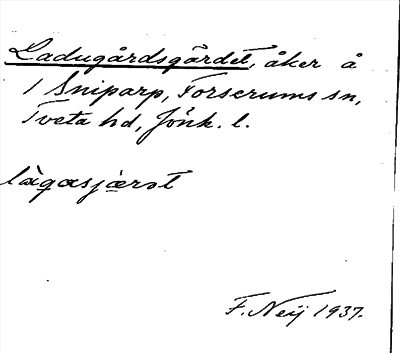 Ladugårdsgärdet, åker å
1 Sniparp, Forserums sn,
Tveta hd, Jönk. l.
F. Neij 1937.